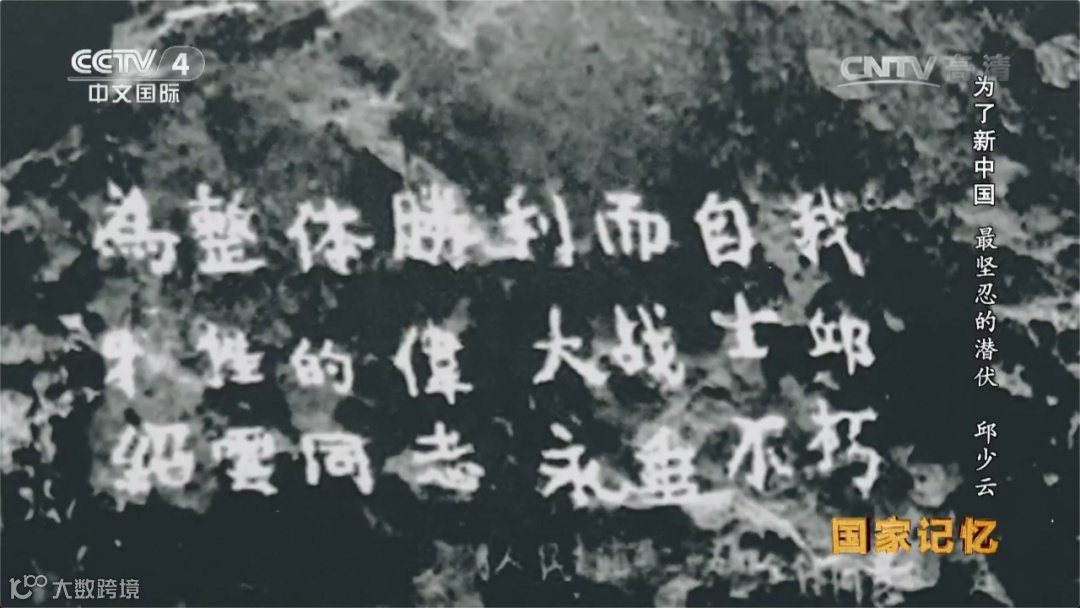 CCTV 4
中文国际
CNTV 高清
为了新中国 最坚忍的潜伏 邱少云
為整体勝利而自我
牺牲的偉大战士邱
紹雲同志永垂不朽
国家记忆
大数跨境